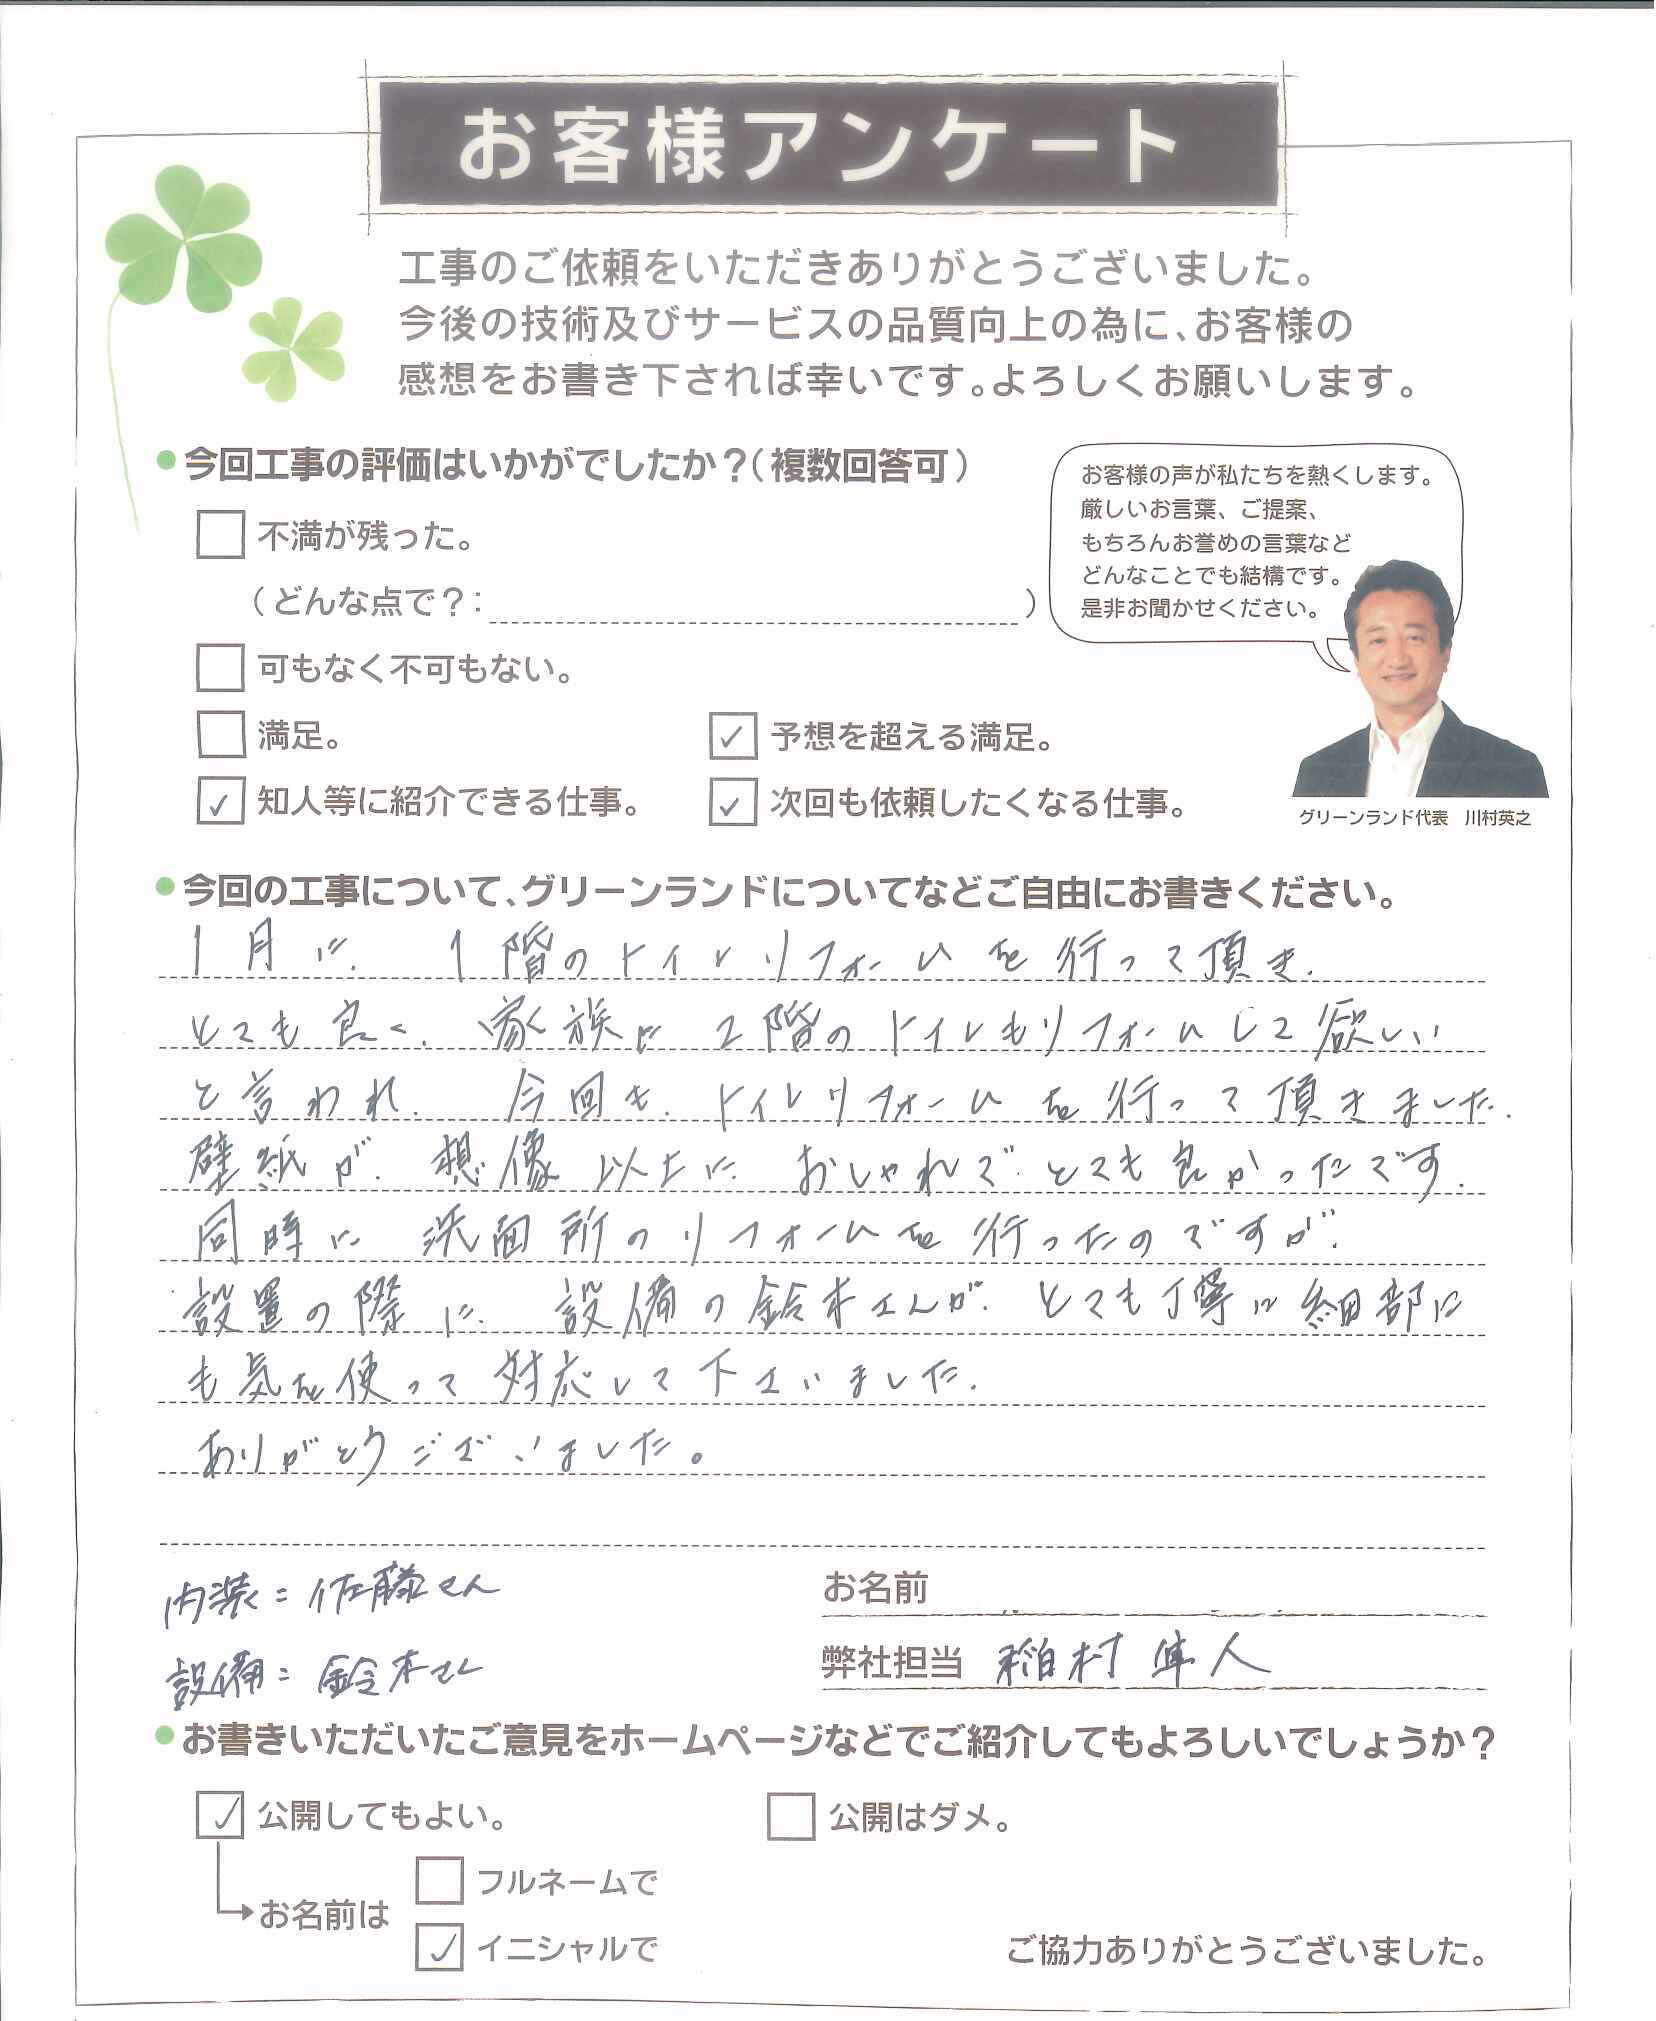 お客様アンケート
工事のご依頼をいただきありがとうございました。
今後の技術及びサービスの品質向上の為に、お客様の
感想をお書き下されば幸いです。よろしくお願いします。
今回工事の評価はいかがでしたか？(複数回答可)
お客様の声が私たちを熱くします。
厳しいお言葉、ご提案、
もちろんお誉めの言葉など
どんなことでも結構です。
是非お聞かせください。
不満が残った。
(どんな点で？: )
可もなく不可もない。
満足。
✓ 予想を超える満足。
✓ 知人等に紹介できる仕事。
✓ 次回も依頼したくなる仕事。
グリーンランド代表 川村英之
今回の工事について、グリーンランドについてなどご自由にお書きください。
1月に、1階のトイレリフォームを行って頂き、
とても良く、家族に2階のトイレもリフォームして欲しい
と言われ、今回も、トイレリフォームを行って頂きました。
壁紙が、想像以上に、おしゃれで、とても良かったです。
同時に、洗面所のリフォームを行ったのですが、
設置の際に、設備の鈴木さんが、とても丁寧に細部に
も気を使って対応して下さいました。
ありがとうございました。
内装：佐藤さん
設備：鈴木さん
お名前
弊社担当 稲村隼人
お書きいただいたご意見をホームページなどでご紹介してもよろしいでしょうか？
✓ 公開してもよい。
公開はダメ。
お名前は
フルネームで
✓ イニシャルで
ご協力ありがとうございました。